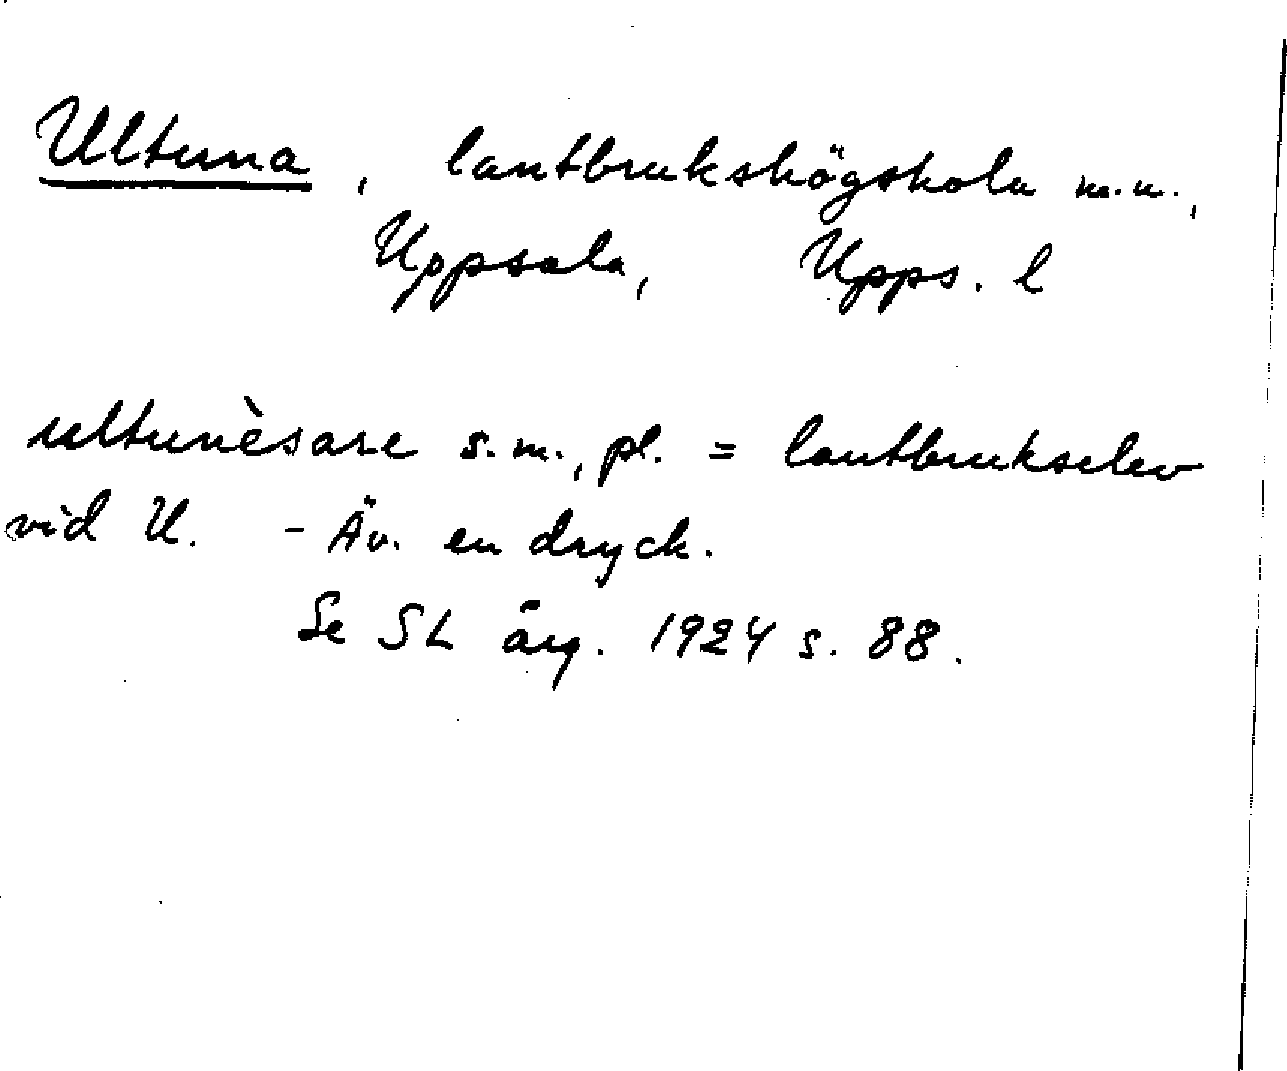 Ultuna, lantbrukshögskola m.m.,
Uppsala, Upps. l
ultunèsare s.m., pl. = lantbrukselev
vid U. - Äv. en dryck.
Se SL årg. 1924 s. 88.